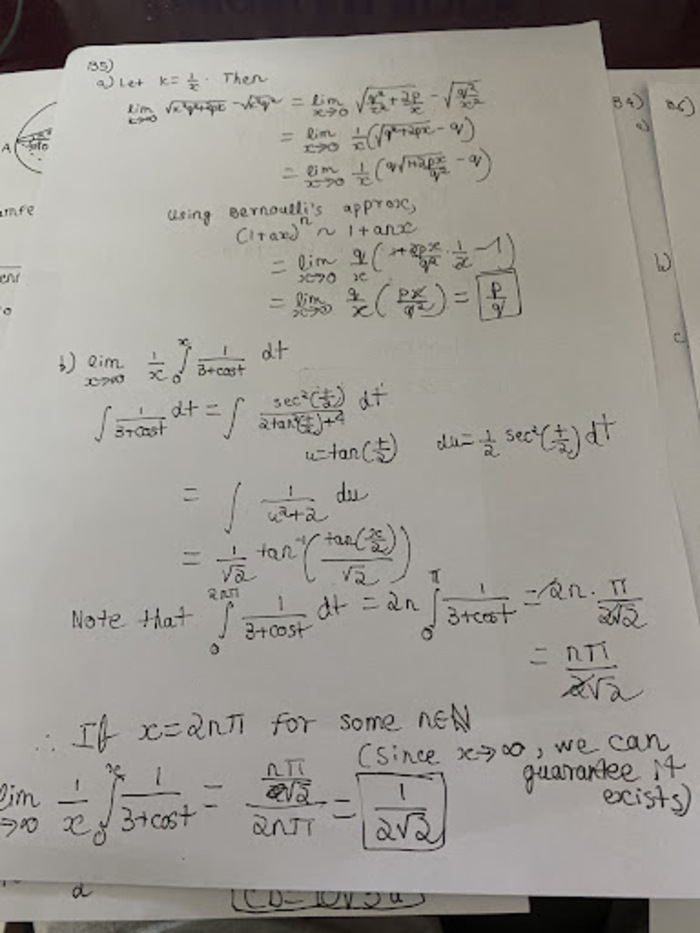 B5)
a) Let k = 1/x. Then
lim x→∞ √(x²q²+2px) - √(x²q²) = lim x→0 √(q²/x² + 2p/x) - √(q²/x²)
= lim x→0 1/x (√(q²+2px) - q)
= lim x→0 1/x (q√(1+2px/q²) - q)
Using Bernoulli's approx,
(1+ax)ⁿ ~ 1+anx
= lim x→0 q/x (1+2px/q² · 1/2 - 1)
= lim x→0 q/x (px/q²) = p/q
b) lim x→∞ 1/x ∫₀ˣ 1/(3+cost) dt
∫ 1/(3+cost) dt = ∫ sec²(t/2)/(2tan²(t/2)+4) dt
u=tan(t/2) du=1/2 sec²(t/2) dt
= ∫ 1/(u²+2) du
= 1/√2 tan⁻¹(tan(x/2)/√2)
Note that ∫₀^(2nπ) 1/(3+cost) dt = 2n ∫₀^π 1/(3+cost) = 2n · π/(2√2)
= nπ/√2
∴ If x=2nπ for some n∈N
(Since x→∞, we can
guarantee it
exists)
lim x→∞ 1/x ∫₀ˣ 1/(3+cost) = (nπ/√2)/(2nπ) = 1/(2√2)
A
B4)
a)
B6)
b)